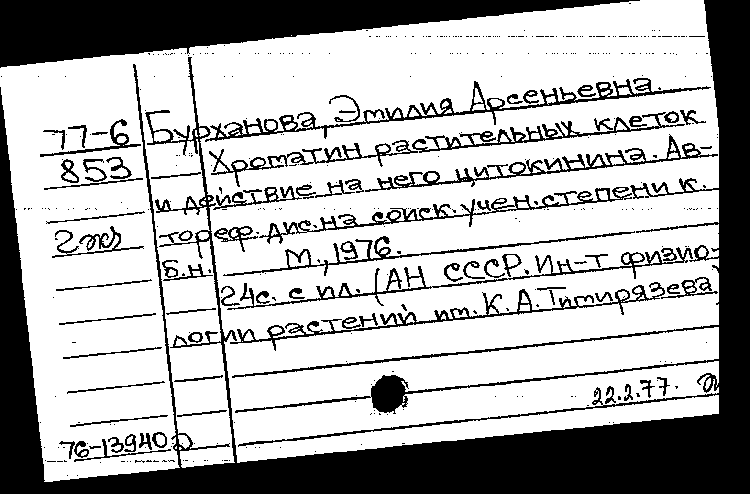 77-6 Бурханова, Эмилия Арсеньевна.
853 Хроматин растительных клеток
и действие на него цитокинина. Ав-
2 экз тореф. дис. на соиск. учен. степени к.
б.н. М., 1976.
24с. с ил. (АН СССР. Ин-т физио-
логии растений им. К.А. Тимирязева)
22.2.77.
76-13940